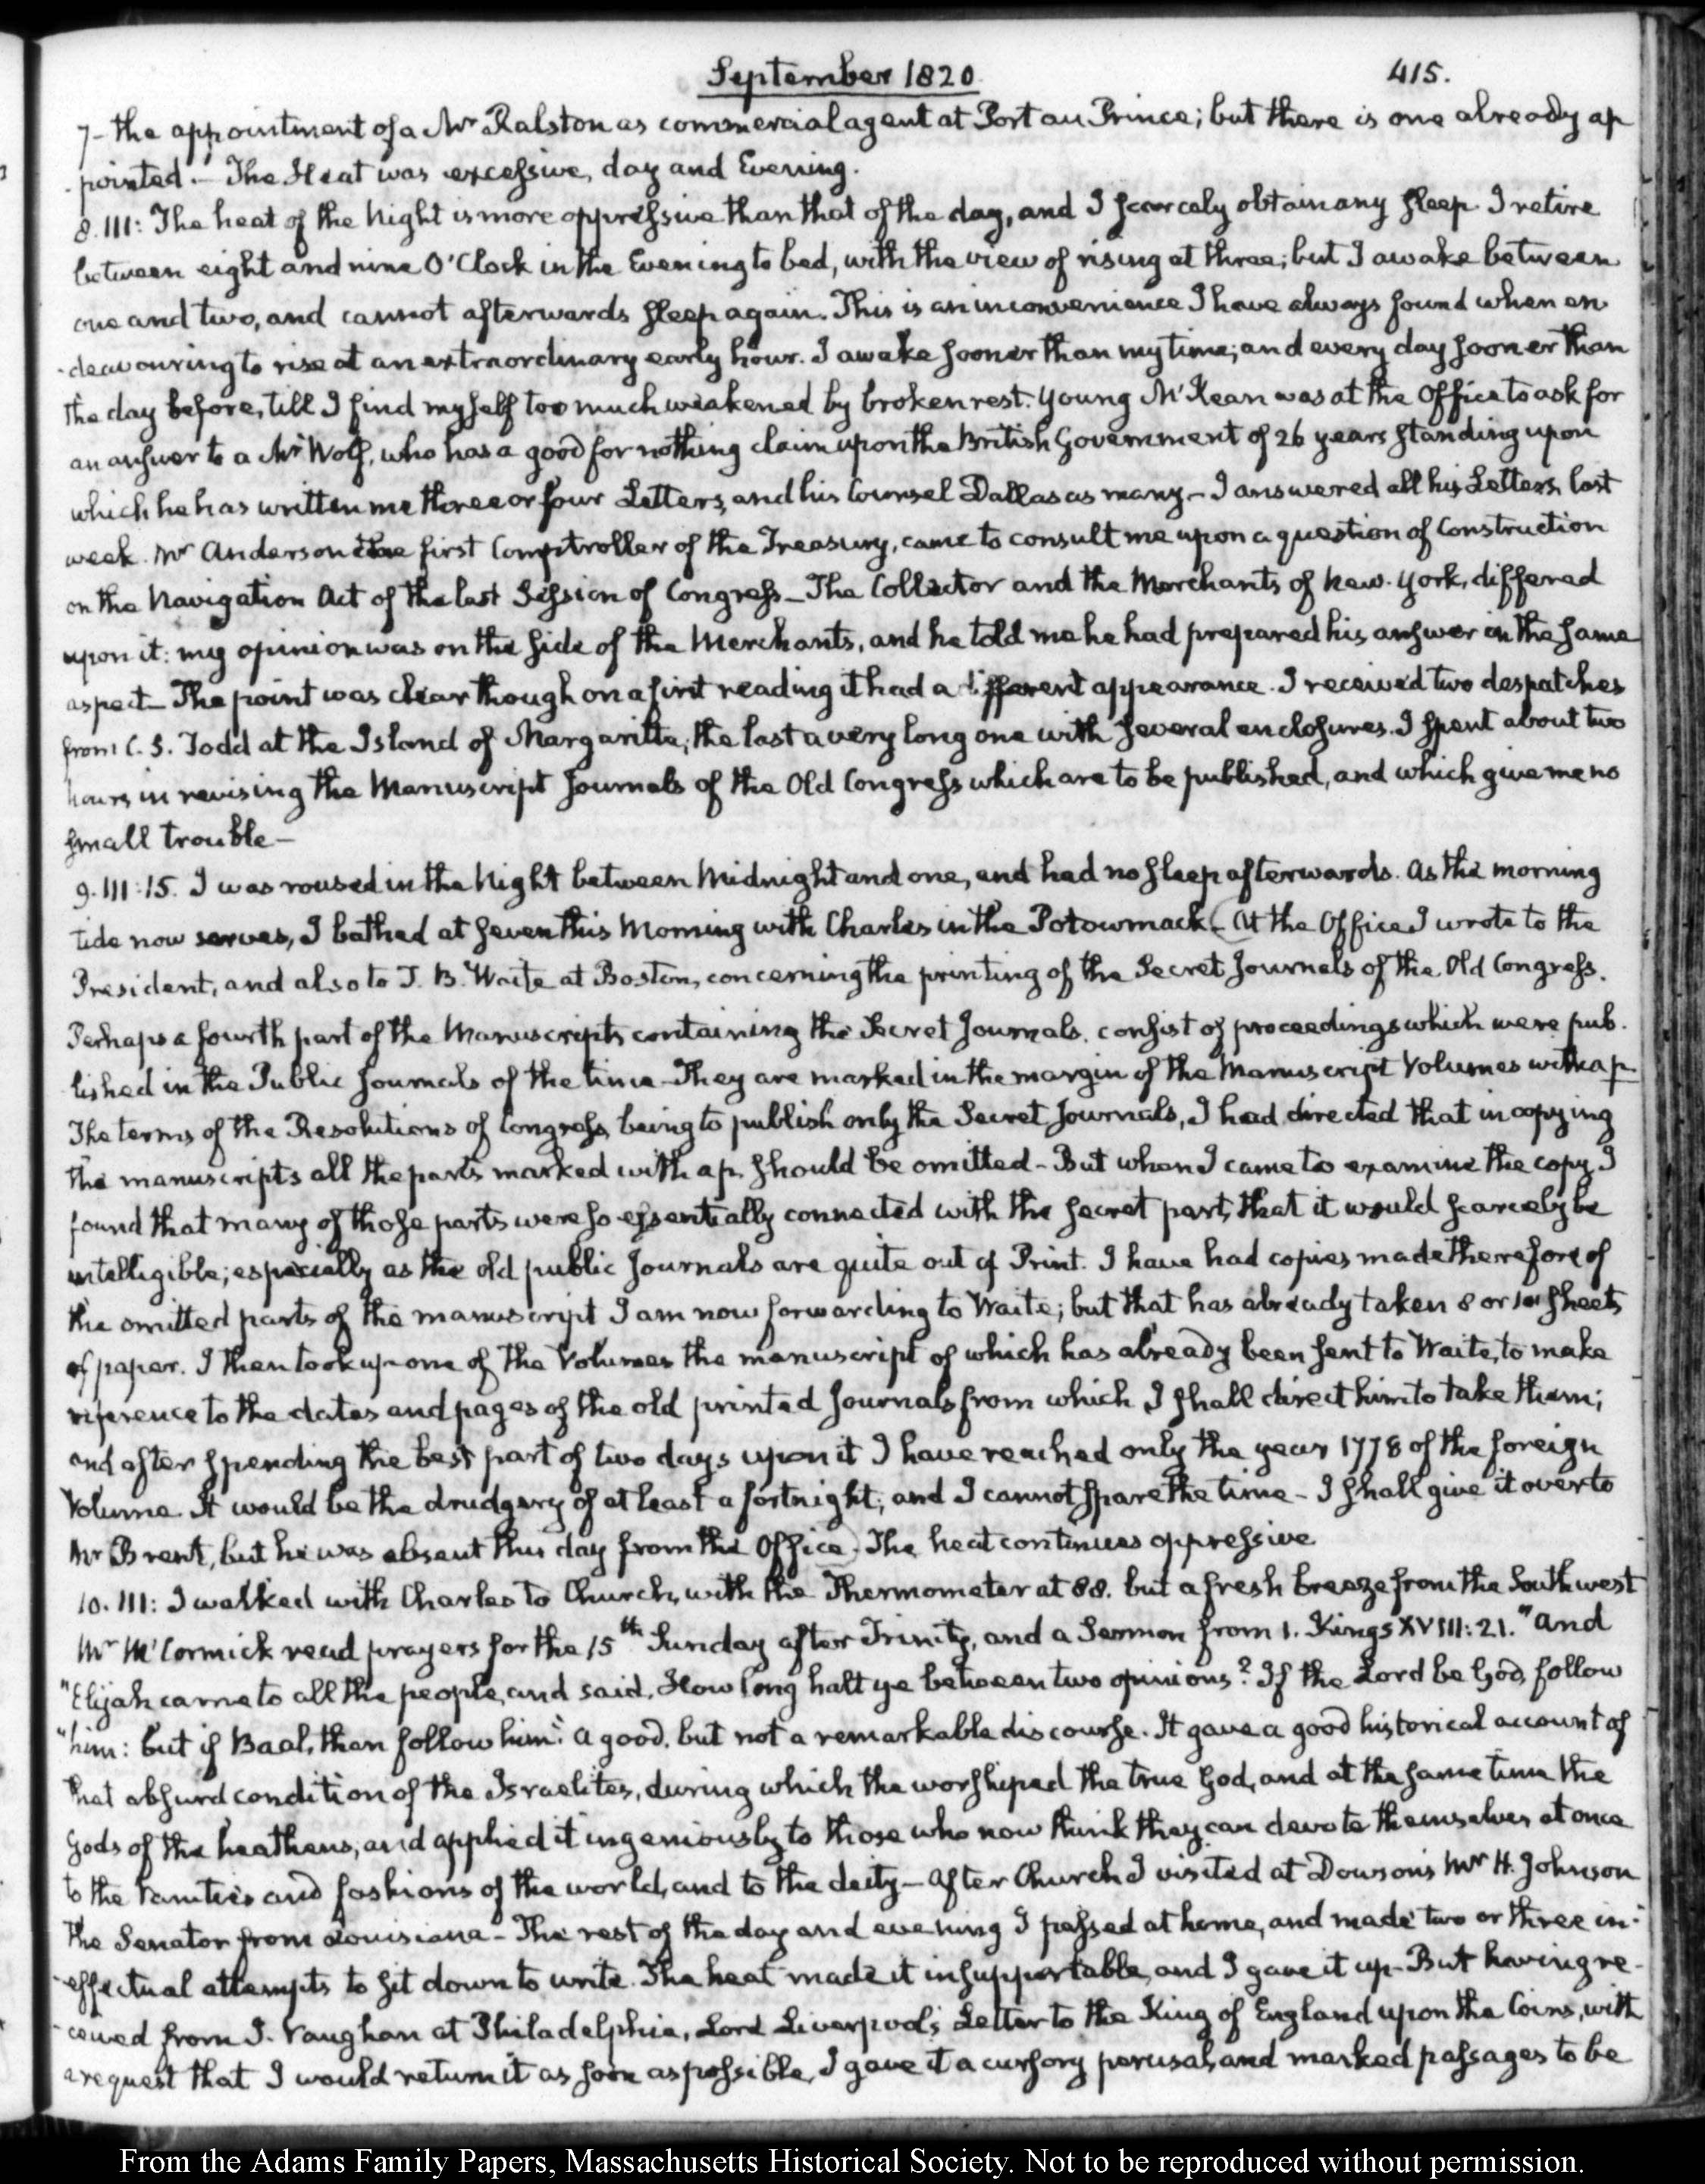 September 1820.
415.
7- the appointment of a Mr Ralston as commercial agent at Port au Prince; but there is one already ap
-pointed.- The Heat was excessive, day and Evening.
8. III: The heat of the Night is more oppressive than that of the day, and I scarcely obtain any sleep. I retire
between eight and nine O'Clock in the Evening to bed, with the view of rising at three; but I awake between
one and two, and cannot afterwards sleep again. This is an inconvenience I have always found when en
-deavouring to rise at an extraordinary early hour. I awake sooner than my time; and every day sooner than
the day before, till I find myself too much weakened by broken rest. Young McKean was at the Office to ask for
an answer to a Mr Wolf, who has a good for nothing claim upon the British Government of 26 years standing upon
which he has written me three or four Letters, and his Counsel Dallas as many- I answered all his Letters last
week. Mr Anderson the first Comptroller of the Treasury, came to consult me upon a question of Construction
on the Navigation Act of the last Session of Congress- The Collector and the Merchants of New-York, differed
upon it: my opinion was on the side of the Merchants, and he told me he had prepared his answer in the same
aspect- The point was clear though on a first reading it had a different appearance. I received two despatches
from C. S. Todd at the Island of Margaritta; the last a very long one with several enclosures. I spent about two
hours in revising the Manuscript Journals of the Old Congress which are to be published, and which give me no
small trouble-
9. III:15. I was roused in the Night between Midnight and one, and had no sleep afterwards. As the morning
tide now serves, I bathed at seven this Morning with Charles in the Potowmack- (At the Office I wrote to the
President, and also to T. B. Waite at Boston, concerning the printing of the Secret Journals of the Old Congress.
Perhaps a fourth part of the Manuscripts containing the Secret Journals, consist of proceedings which were pub-
lished in the Public Journals of the time- They are marked in the margin of the Manuscript Volumes with a p.
The terms of the Resolutions of Congress being to publish only the Secret Journals, I had directed that in copying
the manuscripts all the parts marked with a p. should be omitted- But when I came to examine the copy I
found that many of those parts were so essentially connected with the secret part, that it would scarcely be
intelligible; especially as the old public Journals are quite out of Print. I have had copies made therefore of
the omitted parts of the manuscript I am now forwarding to Waite; but that has already taken 8 or 10 sheets
of paper. I then took up one of the Volumes the manuscript of which has already been sent to Waite, to make
reference to the dates and pages of the old printed Journals from which I shall direct him to take them;
and after spending the best part of two days upon it I have reached only the year 1778 of the foreign
Volume. It would be the drudgery of at least a fortnight; and I cannot spare the time- I shall give it over to
Mr Brent, but he was absent this day from the Office.) The heat continues oppressive
10. III: I walked with Charles to Church, with the Thermometer at 88. but a fresh breeze from the Southwest
Mr McCormick read prayers for the 15th Sunday after Trinity, and a Sermon from 1. Kings XVIII:21. "And
"Elijah came to all the people, and said, How long halt ye between two opinions? If the Lord be God, follow
"him: but if Baal, then follow him." A good, but not a remarkable discourse. It gave a good historical account of
that absurd condition of the Israelites, during which the worshiped the true God, and at the same time the
Gods of the heathens, and applied it ingeniously to those who now think they can devote themselves at once
to the vanities and fashions of the world, and to the deity- After Church I visited at Dowson's Mr H. Johnson
the Senator from Louisiana- The rest of the day and evening I passed at home, and made two or three in-
-effectual attempts to sit down to write. The heat made it insupportable, and I gave it up- But having re-
-ceived from J. Vaughan at Philadelphia, Lord Liverpool's Letter to the King of England upon the Coins, with
a request that I would return it as soon as possible, I gave it a cursory perusal, and marked passages to be
From the Adams Family Papers, Massachusetts Historical Society. Not to be reproduced without permission.